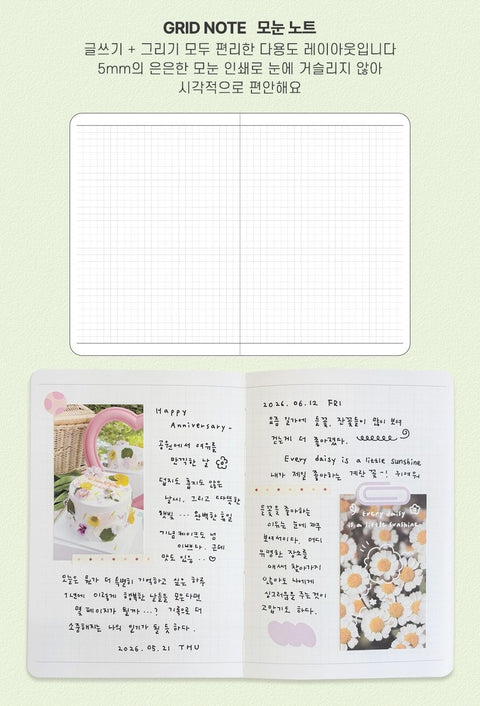 GRID NOTE 모눈 노트
글쓰기 + 그리기 모두 편리한 다용도 레이아웃입니다
5mm의 은은한 모눈 인쇄로 눈에 거슬리지 않아
시각적으로 편안해요
Happy
Anniversary-
공원에서 여유를
만끽한 날
덥지도 춥지도 않은
날씨, 그리고 따뜻한
햇빛... 완벽한 휴일
기념 케이크도 넘
이쁘다. 근데
맛도 있음..♡
오늘은 뭔가 더 특별히 기억하고 싶은 하루
1년에 이렇게 행복한 날들을 모은다면
몇 페이지가 될까...? 기록으로 더
소중해지는 나의 일기가 될 듯 하다.
2026.05.21 THU
2026.06.12 FRI
요즘 길가에 들꽃, 잔꽃들이 많이 보여
걷는게 더 좋아졌다.
Every daisy is a little sunshine
내가 제일 좋아하는 계란 꽃~! 귀여워
들꽃을 좋아하는
이유는 눈에 자주
보여서이다. 어디
유명한 장소를
애써 찾아가지
않아도 나에게
싱그러움을 주는것이
고맙기도 하다.
Every daisy
is a little sunshine